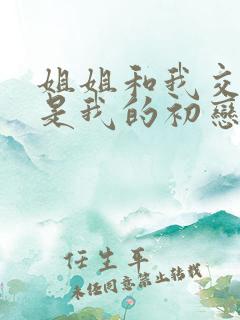 姐姐和我交
是我的初戀
任生平
未经同意禁止转载